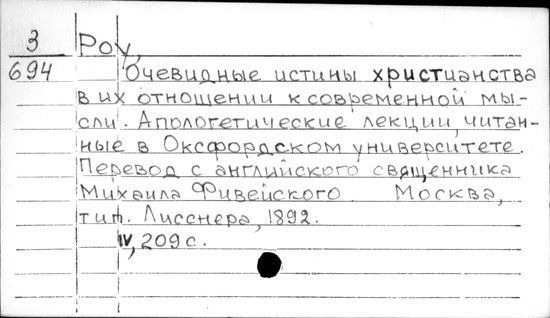 З
694
Роу,
Очевидные истины христианства
в их отношении к современной мы-
сли. Апологетические лекции, читан-
ные в Оксфордском университете.
Перевод с английского священника
Михаила Фивейского. Москва,
тип. Лисснера, 1892.
IV, 209 с.